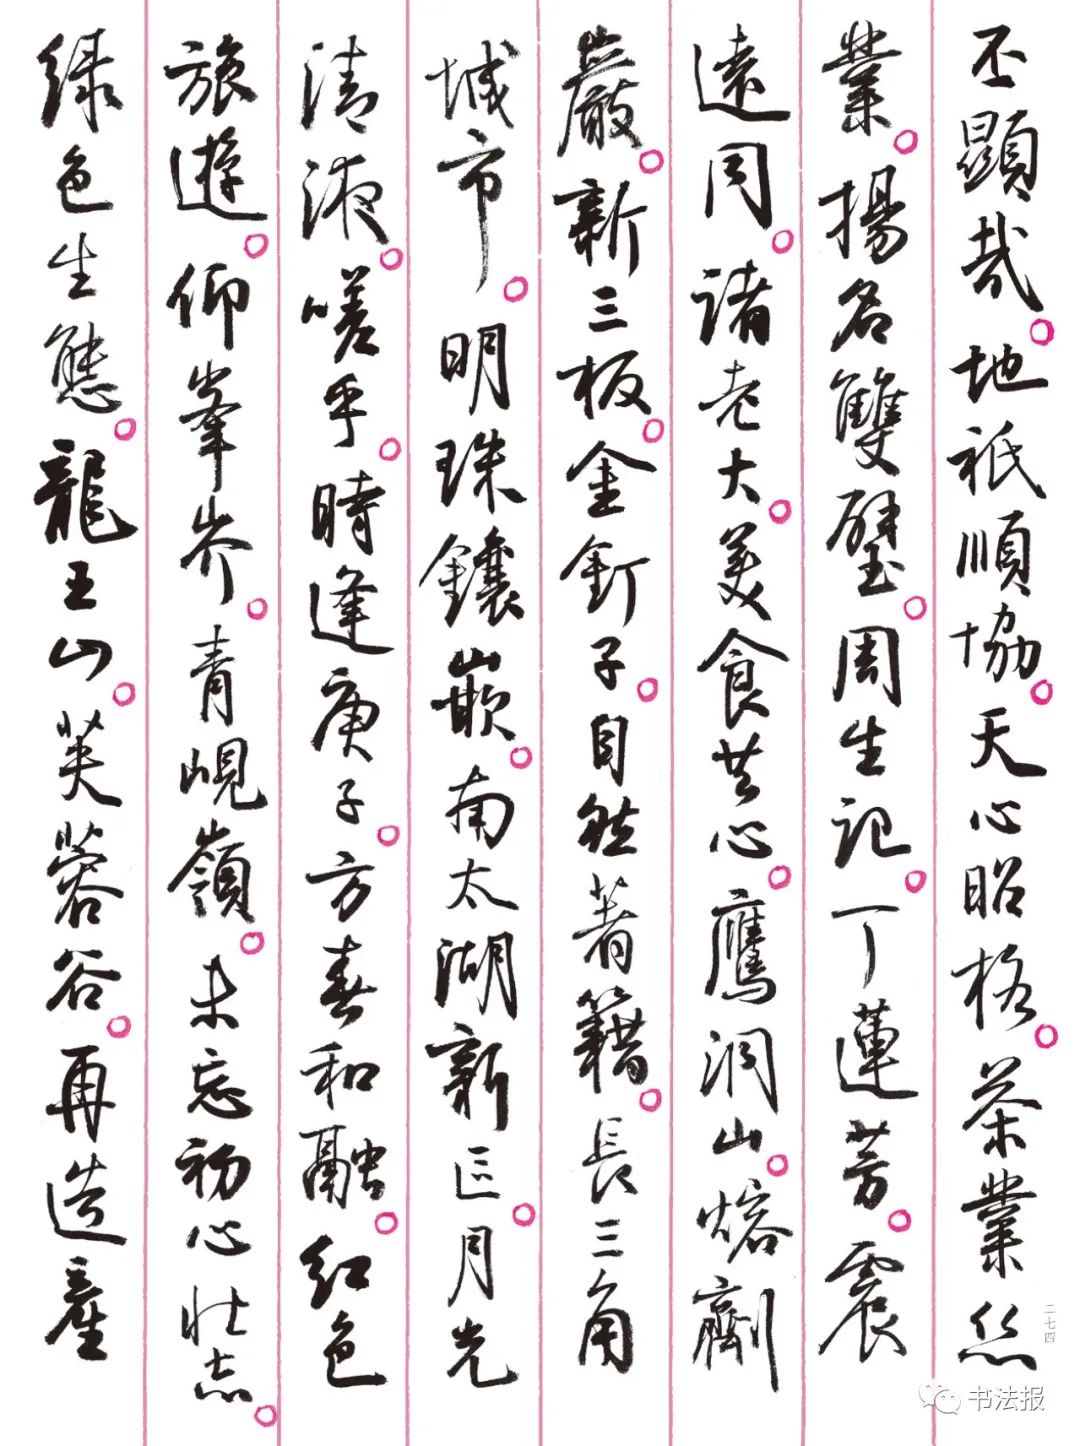 丕顯哉。地祇順協。天心昭格。茶業丝
業。揚名雙璧。周生记。丁蓮芳。震
遠同。諸老大。美食芸心。鷹洞山。熔劑
嚴。新三板。金釘子。自然著籍。長三角
城市。明珠鑲嵌。南太湖新区。月光
清液。嗟乎。時逢庚子。方春和融。红色
旅遊。仰峯岕。青峴嶺。未忘初心壮志。
绿色生態。龍王山。芙蓉谷。再造產
二七四
书法报